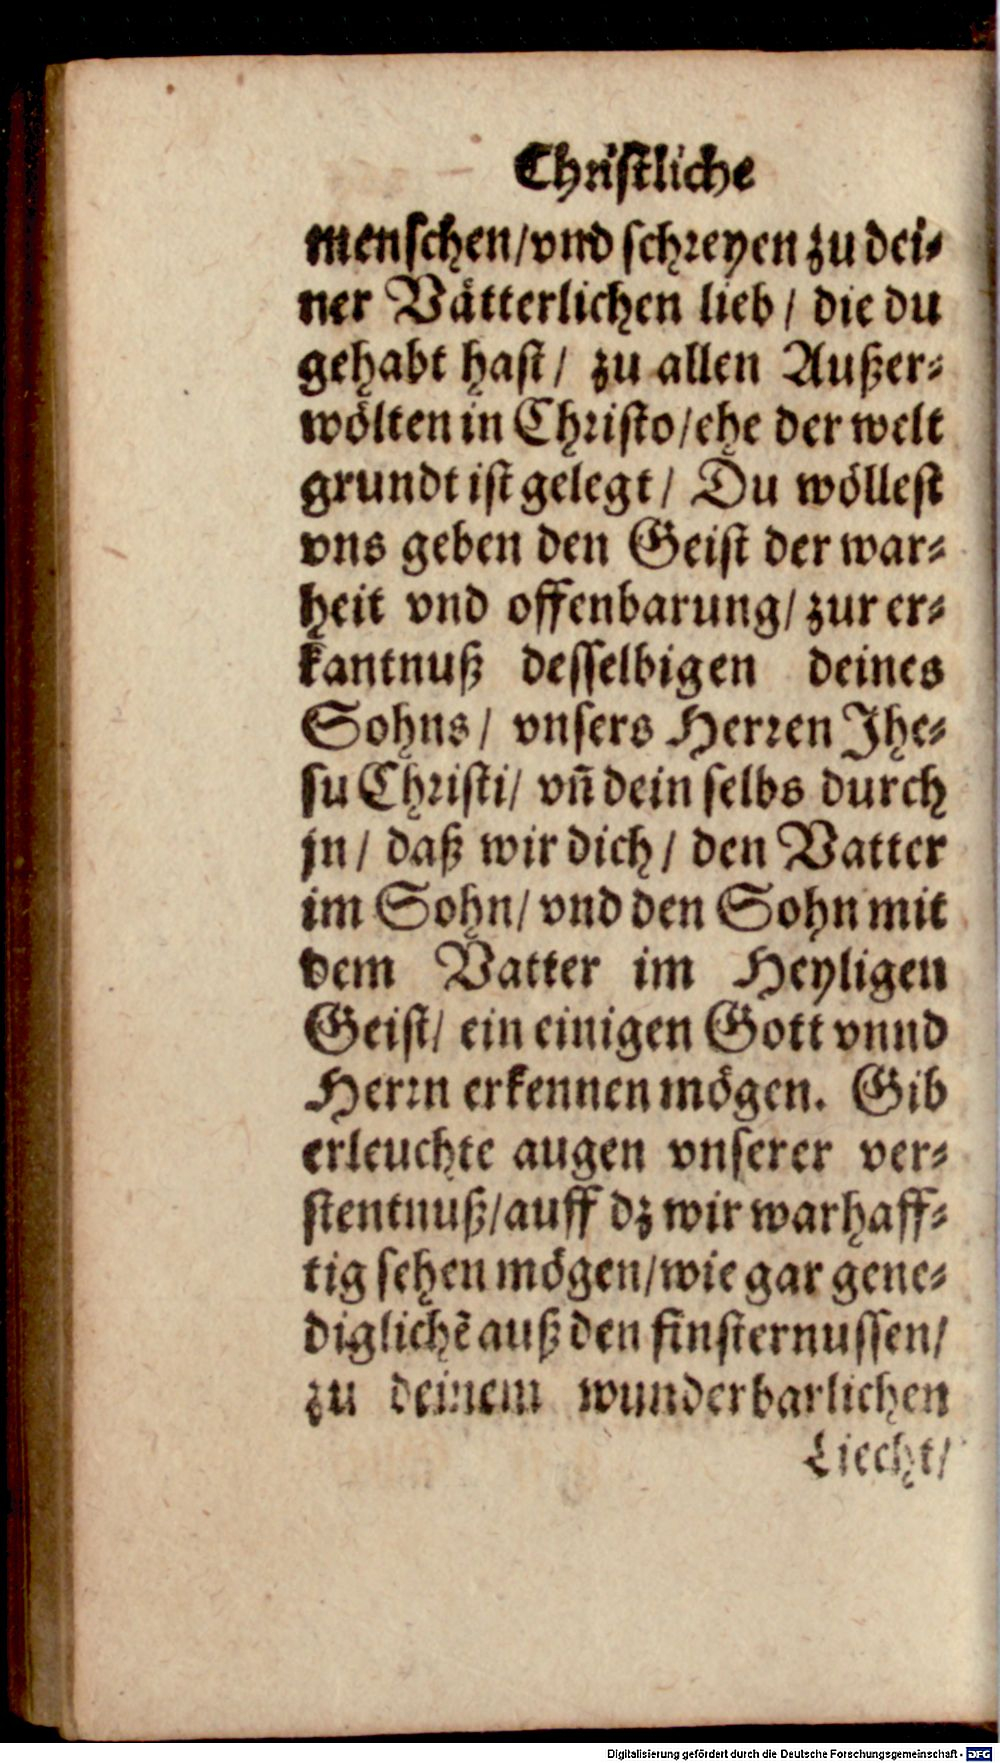 Christliche
menschen/vnd schreyen zu dei-
ner Vätterlichen lieb/ die du
gehabt hast/ zu allen Außer-
wölten in Christo/ehe der welt
grundt ist gelegt/ Du wöllest
vns geben den Geist der war-
heit vnd offenbarung/ zur er-
kantnuß desselbigen deines
Sohns/ vnsers Herren Jhe-
su Christi/ vñ dein selbs durch
jn/ daß wir dich/ den Vatter
im Sohn/ vnd den Sohn mit
dem Vatter im Heyligen
Geist/ ein einigen Gott vnnd
Herrn erkennen mögen. Gib
erleuchte augen vnserer ver-
stentnuß/auff dz wir warhaff-
tig sehen mögen/wie gar gene-
diglichē auß den finsternussen/
zu deinem wunderbarlichen
Liecht/
Digitalisierung gefördert durch die Deutsche Forschungsgemeinschaft - DFG